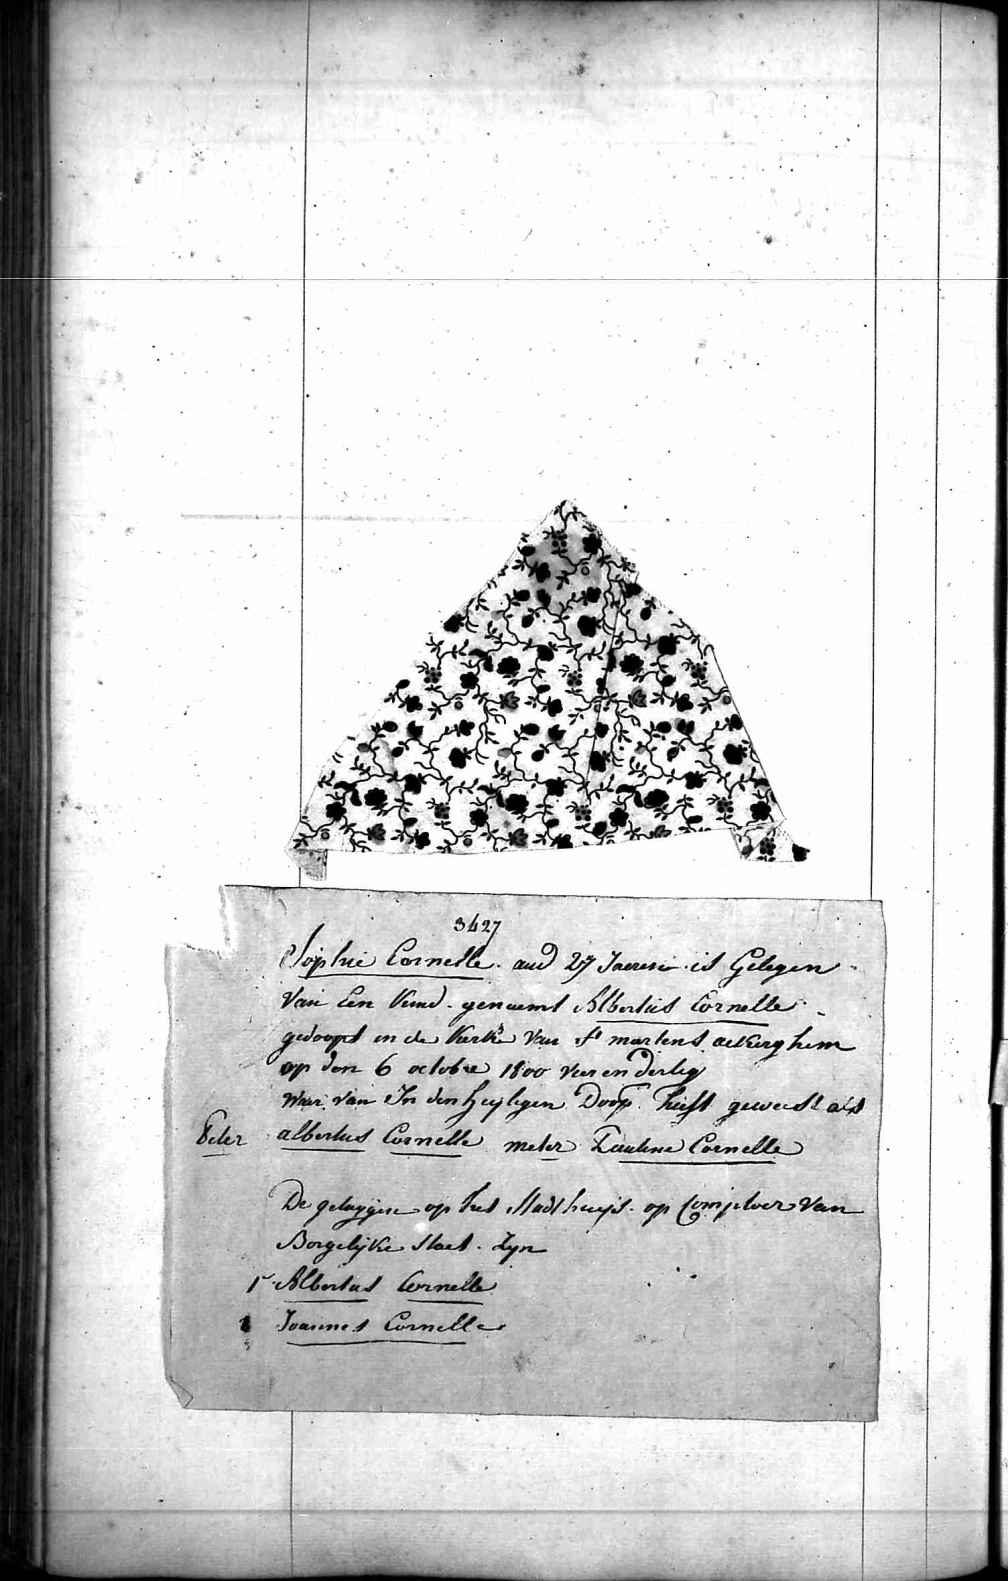 3427
Sophie Cornelle. aud 27 Jaeren is Gelegen
Van Een Kind. genaemt Albertus Cornelle
gedoopt in de Kerke Van St martens aekerghem
op den 6 octobre 1800 vier en dertig
Waer van In den heyligen Doop heift geweest als
Peter albertus Cornelle meter Pauline Cornelle
De getuygen op het Stadthuys. op Comptoer Van
Borgelijke Staet. Zyn
1 Albertus Cornelle
Joannes Cornelle